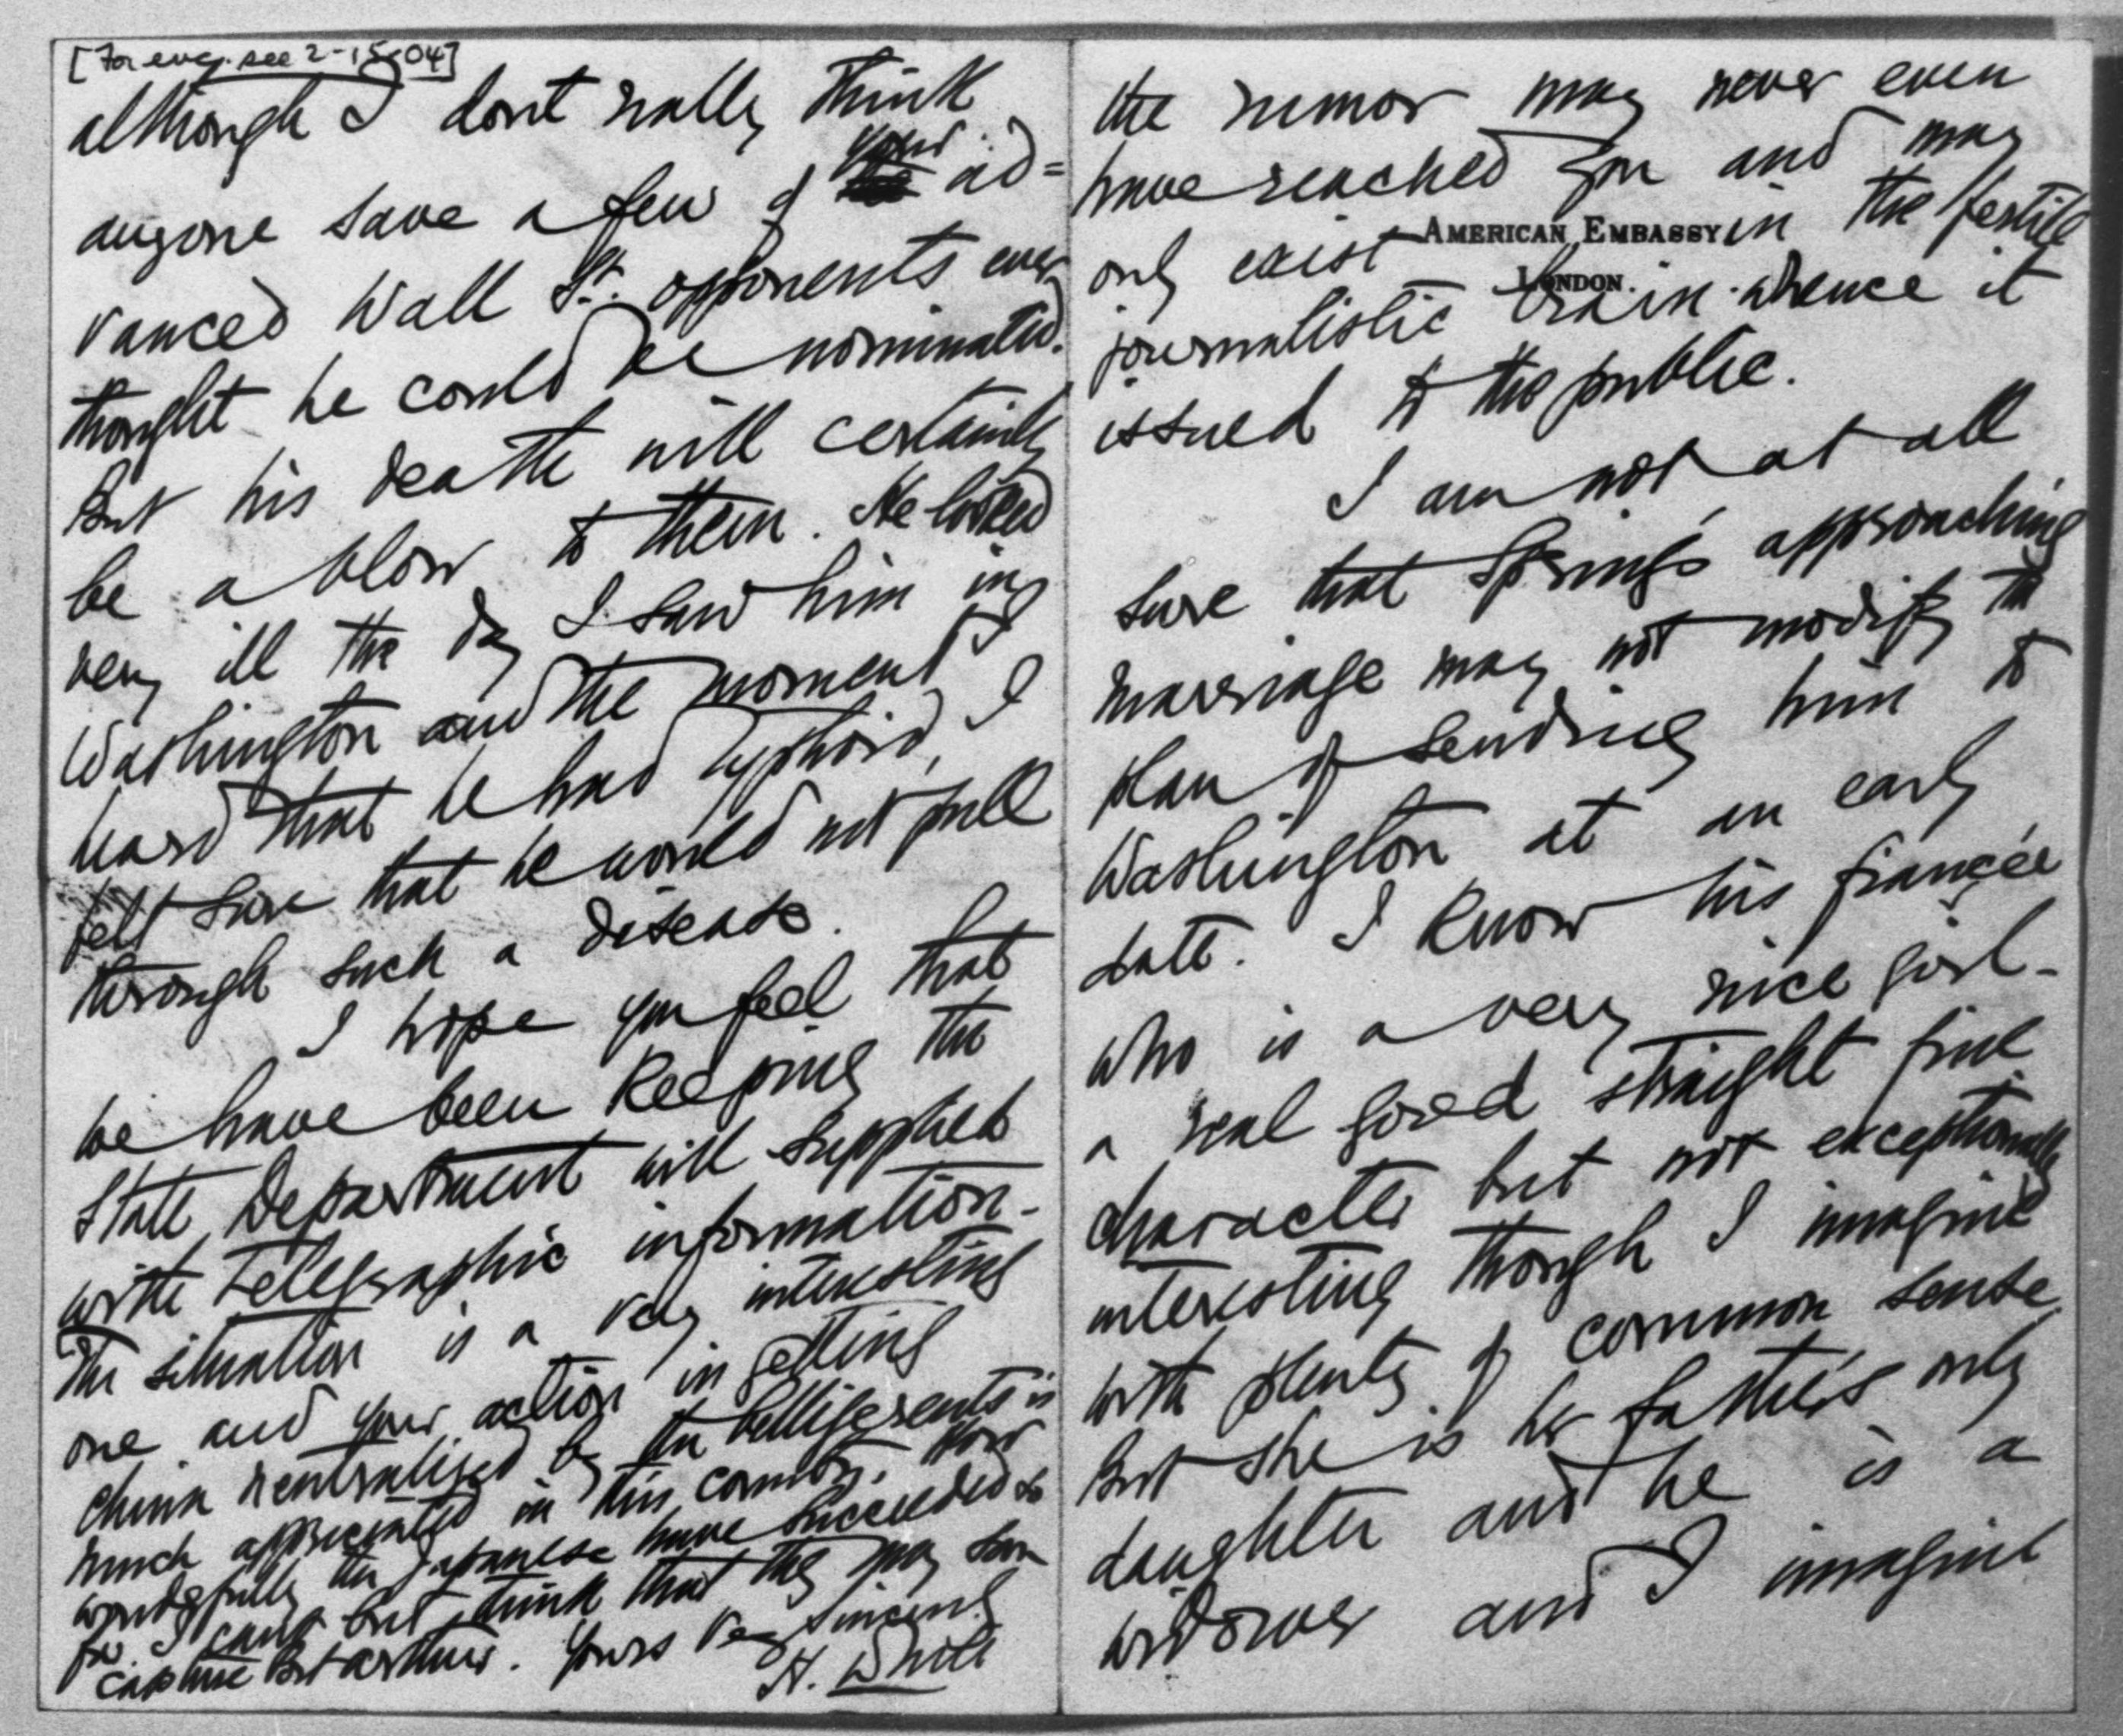 [For enc. see 2-15-04]
although I dont really think
anyone save a few of your ad=
vanced Wall St. opponents ever
thought he could be nominated.
But his death will certainly
be a blow to them. He looked
very ill the day I saw him in
Washington and the moment I
heard that he had typhoid, I
felt sure that he would not pull
through such a disease.
I hope you feel that
we have been keeping the
State Department well supplied
with telegraphic information.
The situation is a very interesting
one and your action in getting
China neutralised by the belligerents is
much appreciated in this country. How
wonderfully the Japanese have succeeded so
far. I cant but think that they may soon
capture Port Arthur. Yours very sincerely
H. White
the rumor may never even
have reached you and may
AMERICAN EMBASSY
LONDON.
only exist in the fertile
journalistic brain whence it
issued to the public.
I am not at all
sure that Spring's approaching
marriage may not modify the
plan of sending him to
Washington at an early
date. I know his fiancée
who is a very nice girl -
a real good straight fine
character but not exceptionally
interesting though I imagine
with plenty of common sense.
But she is her father's only
daughter and he is a
widower and I imagine